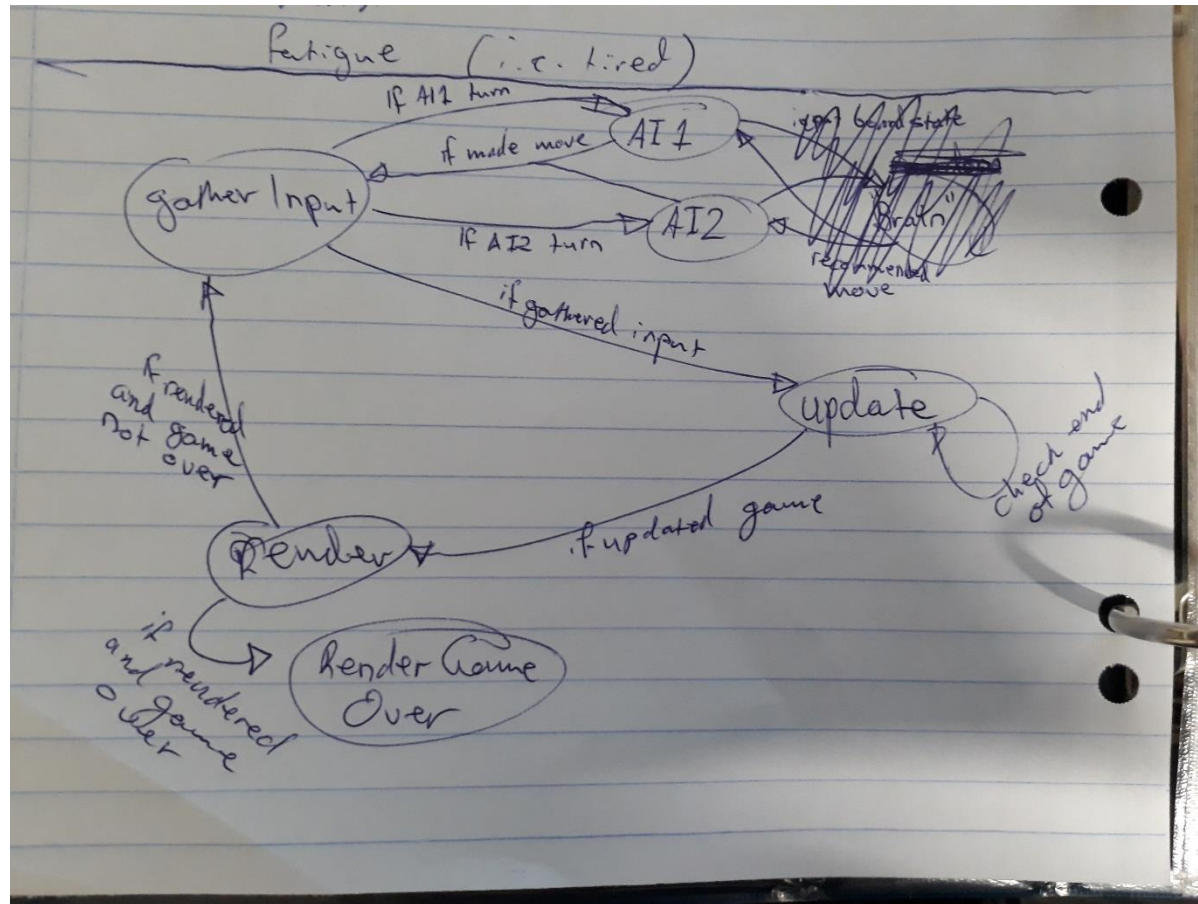 fatigue (i.e. tired)
If AI1 turn
AI 1
input board state
if made move
gather Input
AI2
"Brain"
If AI2 turn
recommended
move
if gathered input
update
check end
of game
if rendered
and game
not over
if updated game
Render
if rendered
and game
over
Render Game
Over